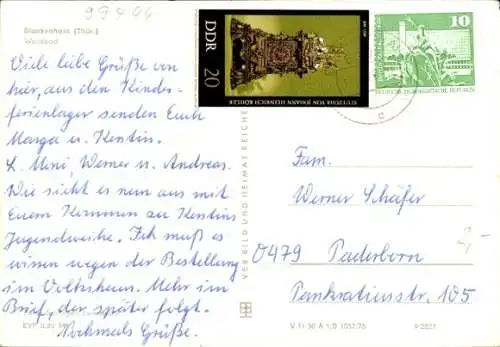 99406
Blankenhain (Thür.)
Waldbad
Viele liebe Grüße von
hier, aus den Kinder-
ferienlager senden Euch
Marga u. Kerstin.
L. Mini, Werner u. Andreas.
Wie sieht es nun aus mit
Eurem Kommen zu Kerstins
Jugendweihe. Ich muß es
wissen wegen der Bestellung
im Volkshaus. Mehr im
Brief, der später folgt.
Nochmals Grüße.
VEB BILD UND HEIMAT REICHENBACH
DDR 20
STUTZUHR VON JOHANN HEINRICH KÖHLER
10
DEUTSCHE DEMOKRATISCHE REPUBLIK
Fam.
Werner Schäfer
0479 Paderborn
Pankratiusstr. 105
2,-
EVP 0,20
V 11 50 A 1/B 1057/76